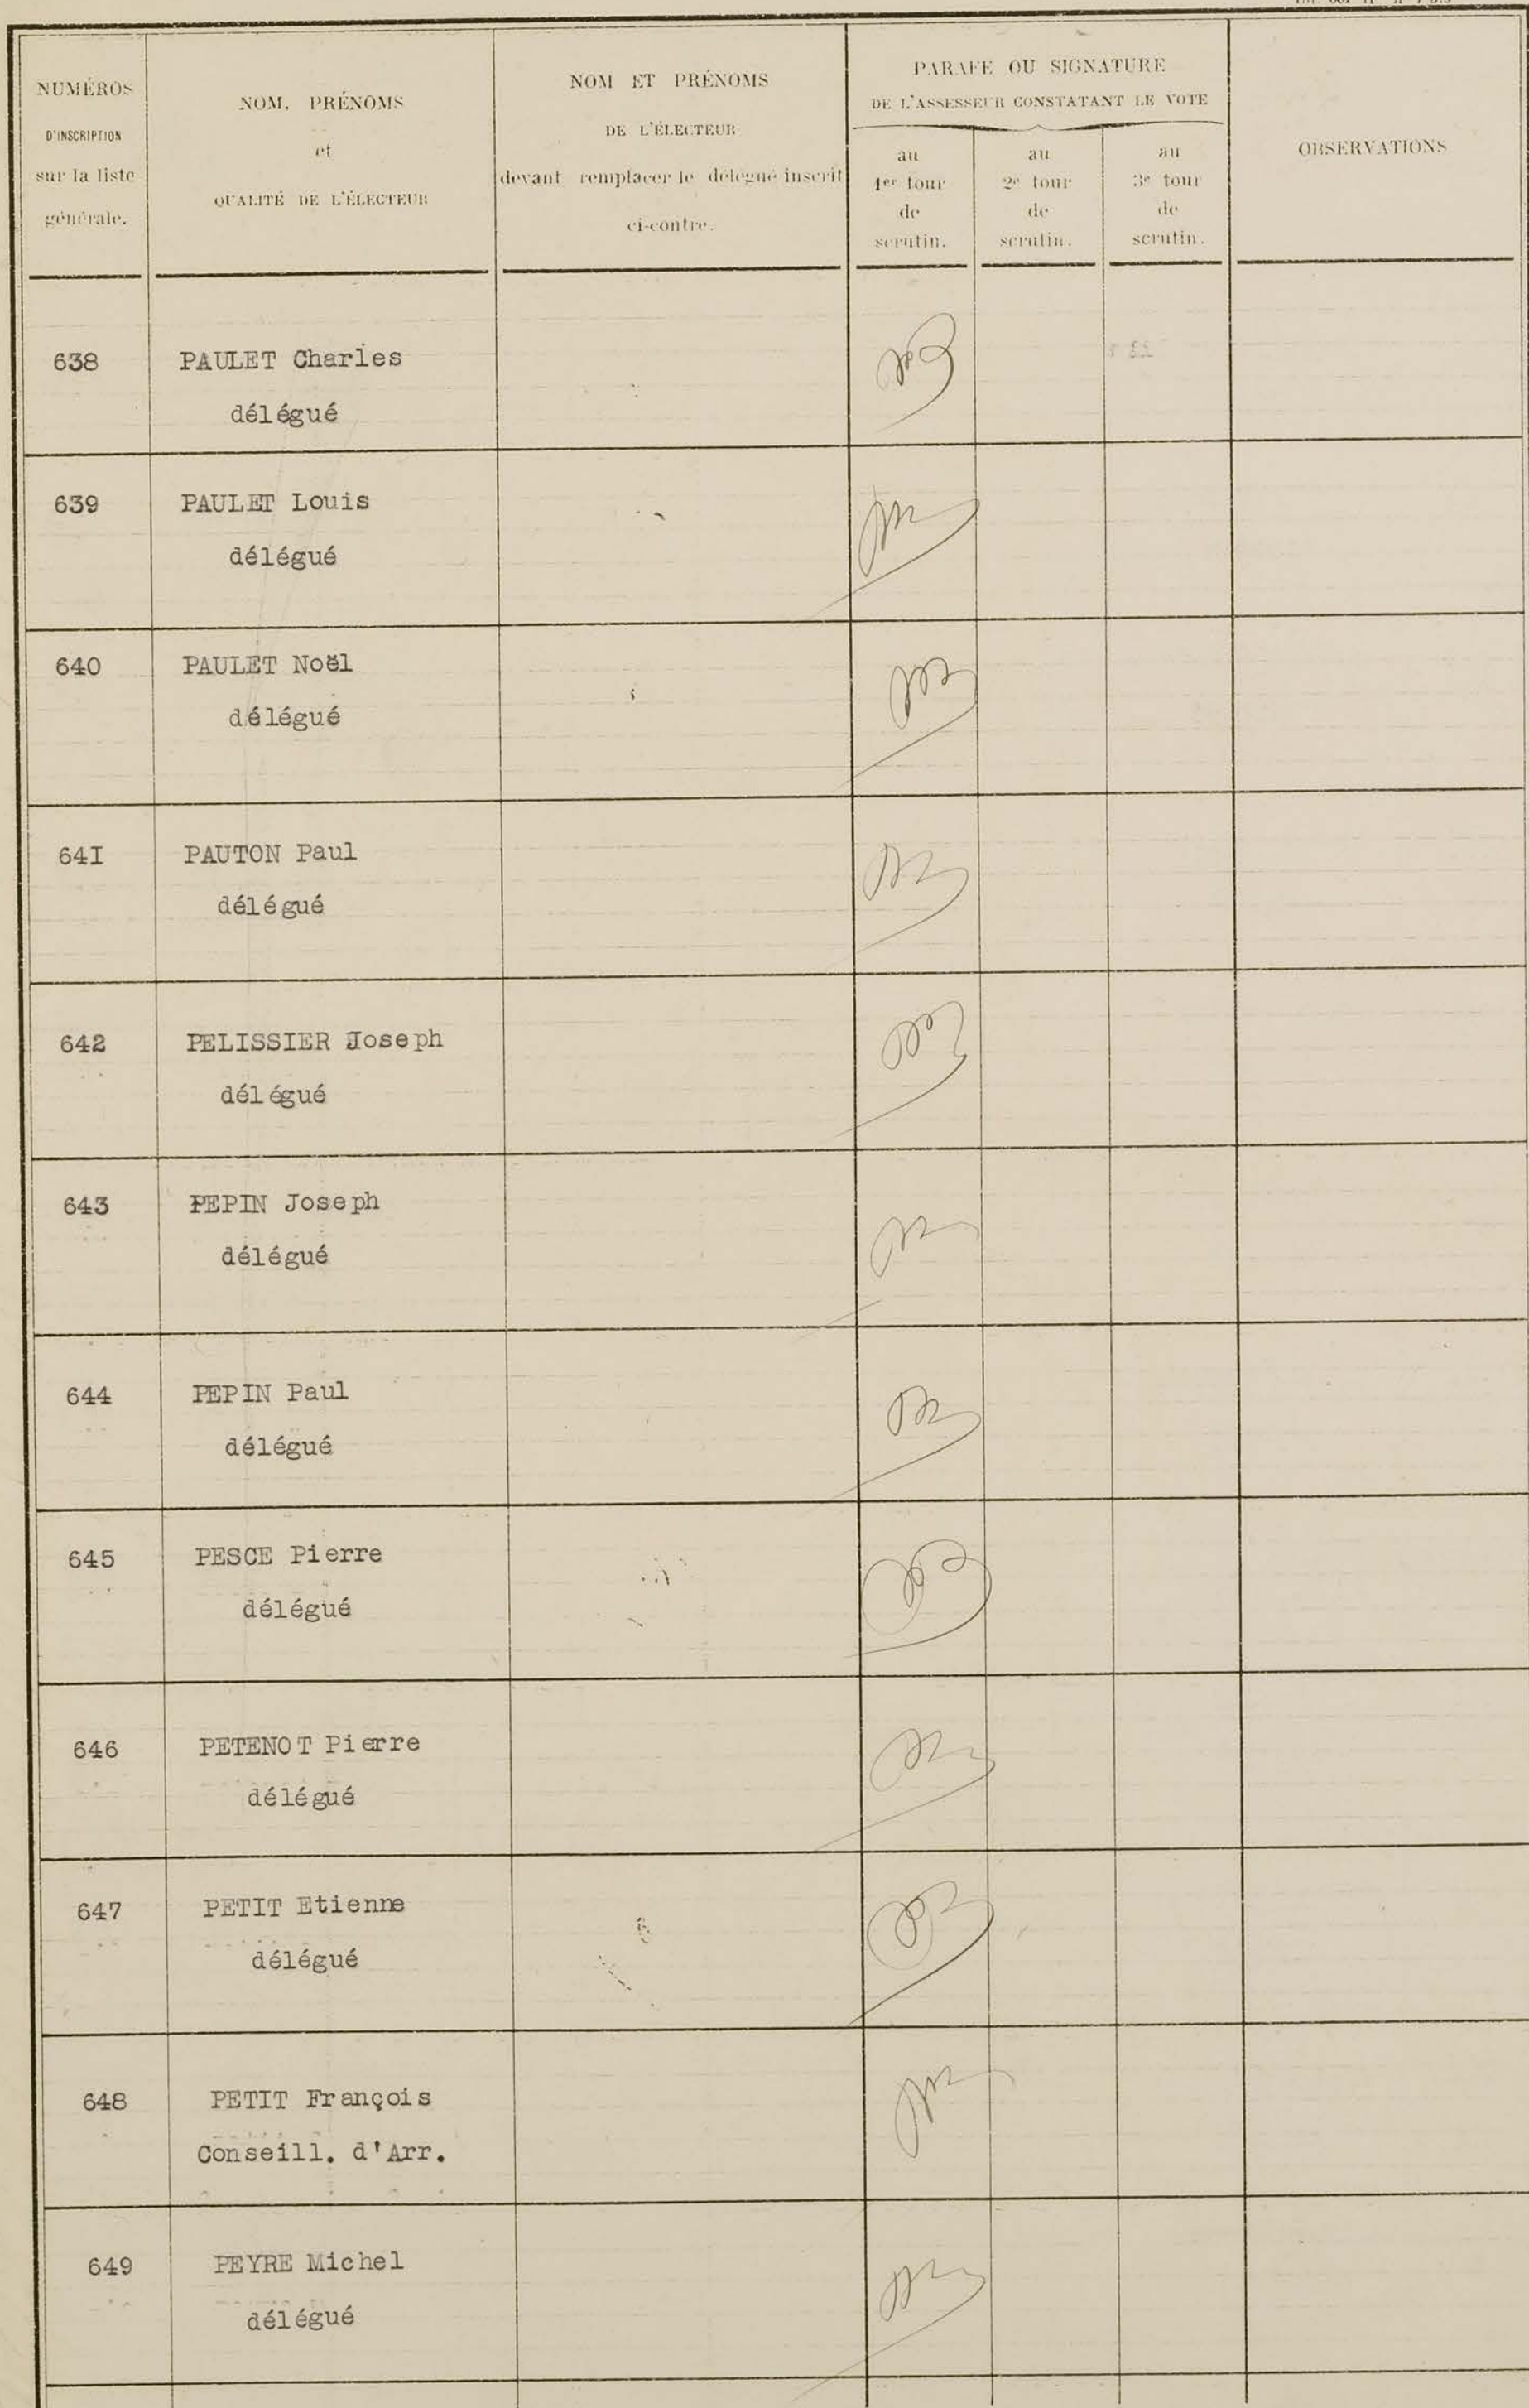 NUMÉROS
D'INSCRIPTION
sur la liste
générale.
NOM, PRÉNOMS
et
QUALITÉ DE L'ÉLECTEUR
NOM ET PRÉNOMS
DE L'ÉLECTEUR
devant remplacer le délégué inscrit
ci-contre.
PARAFE OU SIGNATURE
DE L'ASSESSEUR CONSTATANT LE VOTE
au
1er tour
de
scrutin.
au
2e tour
de
scrutin.
au
3e tour
de
scrutin.
OBSERVATIONS
638 PAULET Charles
délégué
639 PAULET Louis
délégué
640 PAULET Noël
délégué
64I PAUTON Paul
délégué
642 PELISSIER Joseph
délégué
643 PEPIN Joseph
délégué
644 PEPIN Paul
délégué
645 PESCE Pierre
délégué
646 PETENOT Pierre
délégué
647 PETIT Etienne
délégué
648 PETIT François
Conseill. d'Arr.
649 PEYRE Michel
délégué